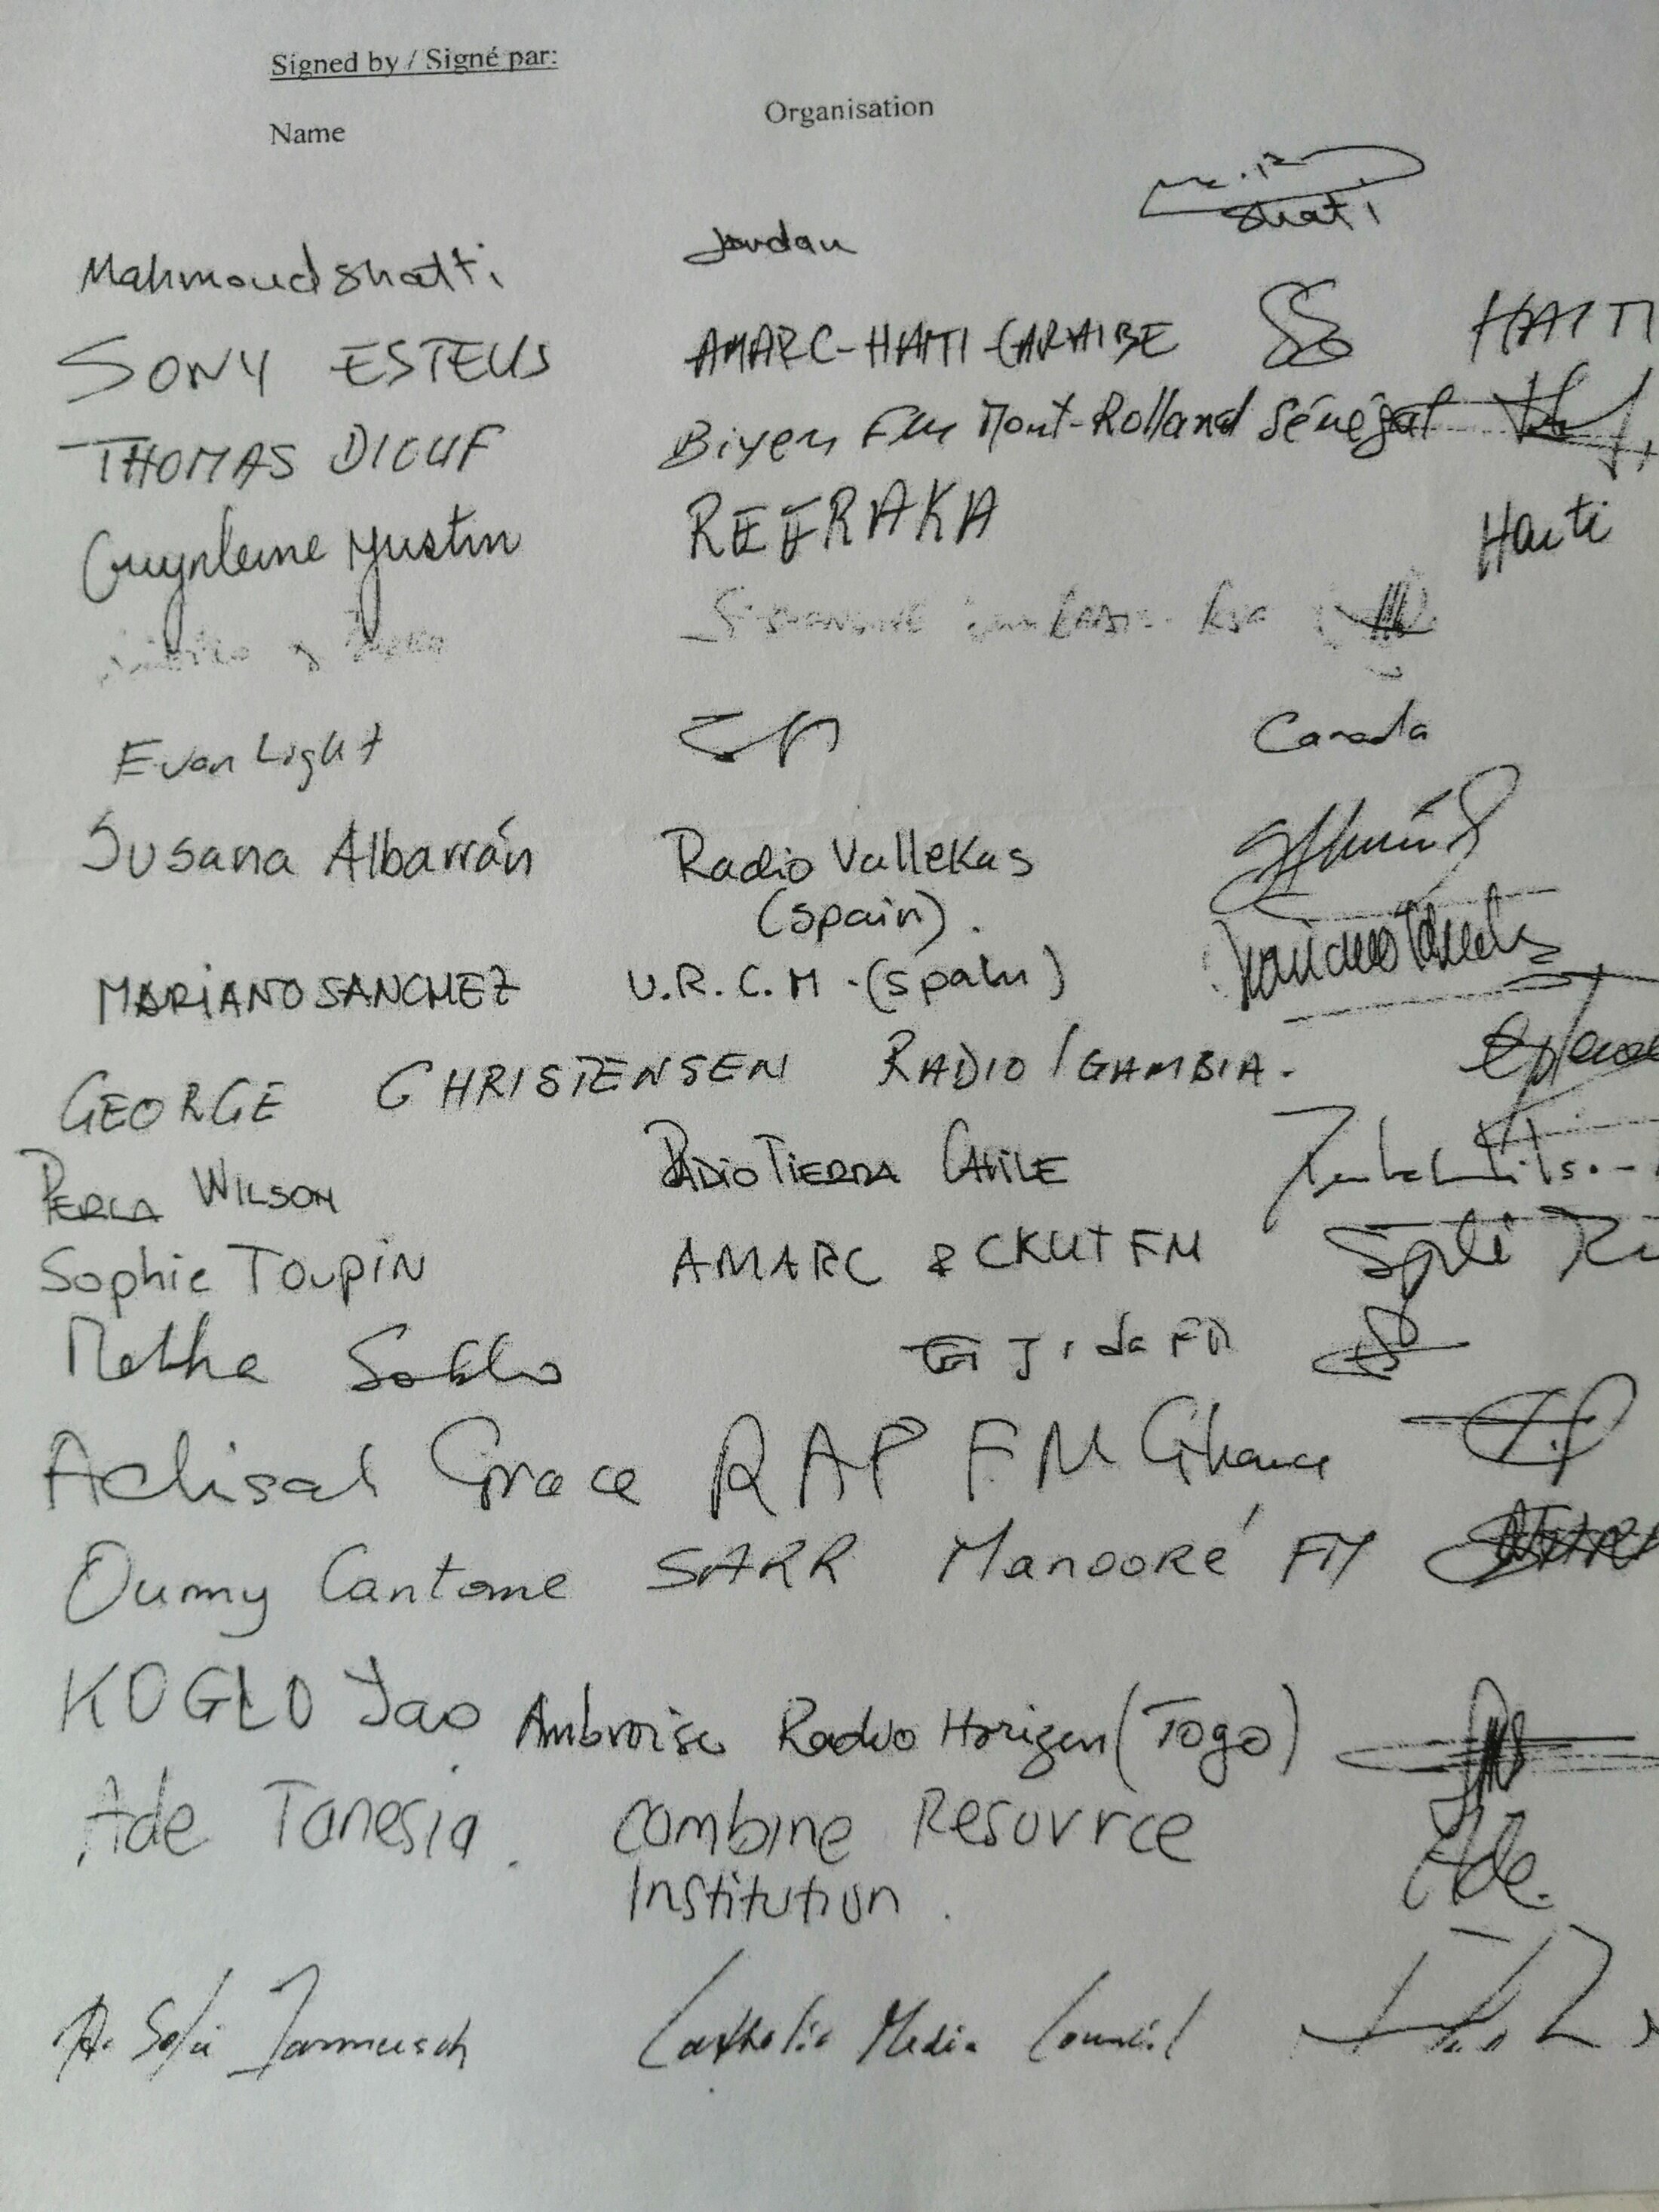 Signed by / Signé par:
Name Organisation
Mahmoud shatti Jordan shati
SONY ESTEUS AMARC-HAITI-CARAIBE HAITI
THOMAS DIOUF Biyen FM Mont-Rolland Sénégal
Guyrleine Justin REFRAKA Haiti
Evan Light Canada
Susana Albarrán Radio Vallekas
(spain).
MARIANO SANCHEZ U.R.C.M.(spain)
GEORGE CHRISTENSEN RADIO / GAMBIA.
PERLA WILSON RADIO TIERRA CHILE
Sophie Toupin AMARC & CKUT FM
FM
Grace RAP FM Ghana
Oumy Cantome SARR Manooré FM
KOGLO Yao Ambroise Radio Horizon (Togo)
Ade Tanesia. combine Resource Ade.
Institution.
Catholic Media Council